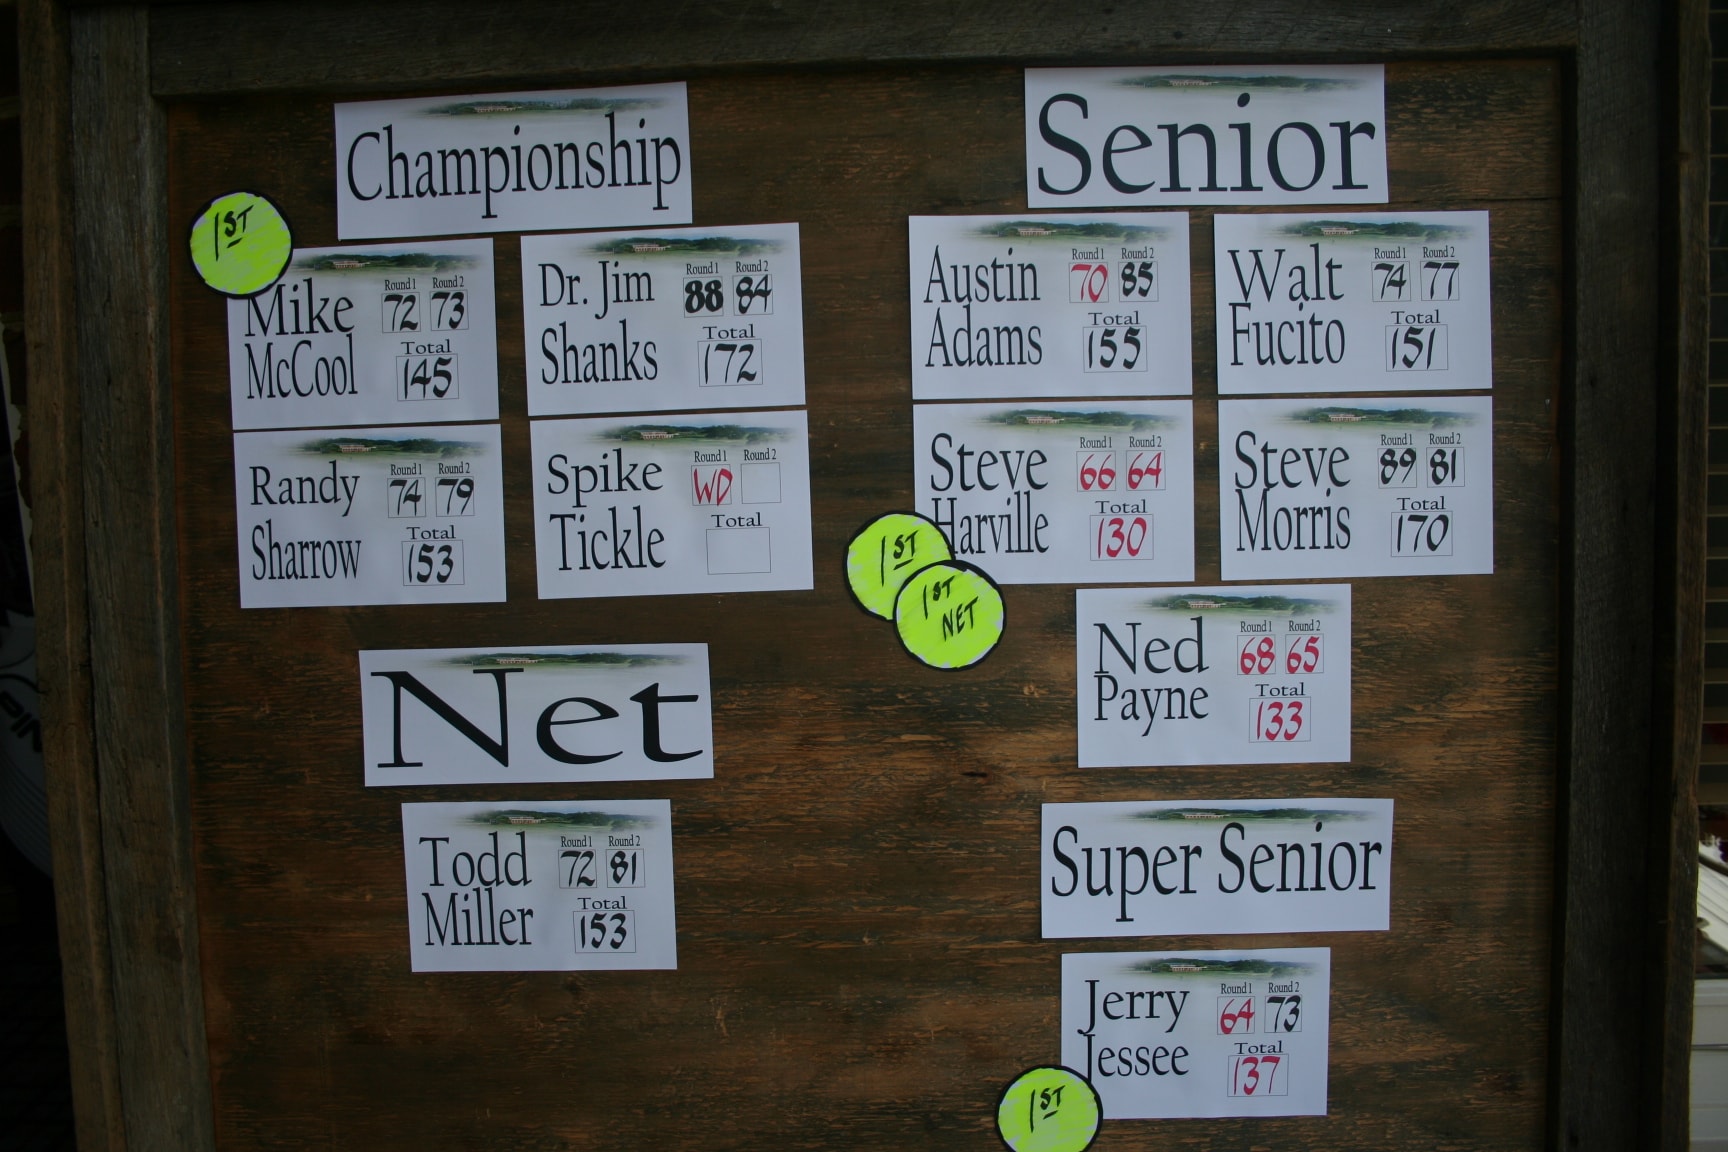 Championship
1ST
Mike
McCool
Round 1 Round 2
72 73
Total
145
Dr. Jim
Shanks
Round 1 Round 2
88 84
Total
172
Randy
Sharrow
Round 1 Round 2
74 79
Total
153
Spike
Tickle
Round 1 Round 2
WD
Total
Net
Todd
Miller
Round 1 Round 2
72 81
Total
153
Senior
Austin
Adams
Round 1 Round 2
70 85
Total
155
Walt
Fucito
Round 1 Round 2
74 77
Total
151
Steve
Harville
Round 1 Round 2
66 64
Total
130
1ST
1ST
NET
Steve
Morris
Round 1 Round 2
89 81
Total
170
Ned
Payne
Round 1 Round 2
68 65
Total
133
Super Senior
Jerry
Jessee
Round 1 Round 2
64 73
Total
137
1ST